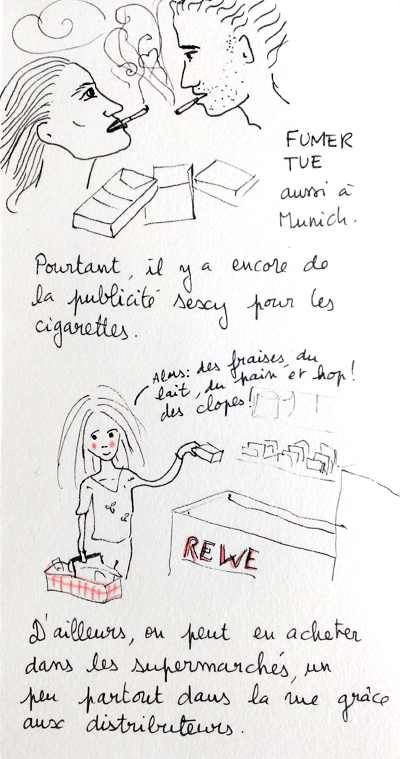 FUMER
TUE
aussi à
Munich.
Pourtant, il y a encore de
la publicité sexy pour les
cigarettes.
Alors: des fraises, du
lait, du pain et hop!
des clopes!
REWE
D'ailleurs, on peut en acheter
dans les supermarchés, un
peu partout dans la rue grâce
aux distributeurs.